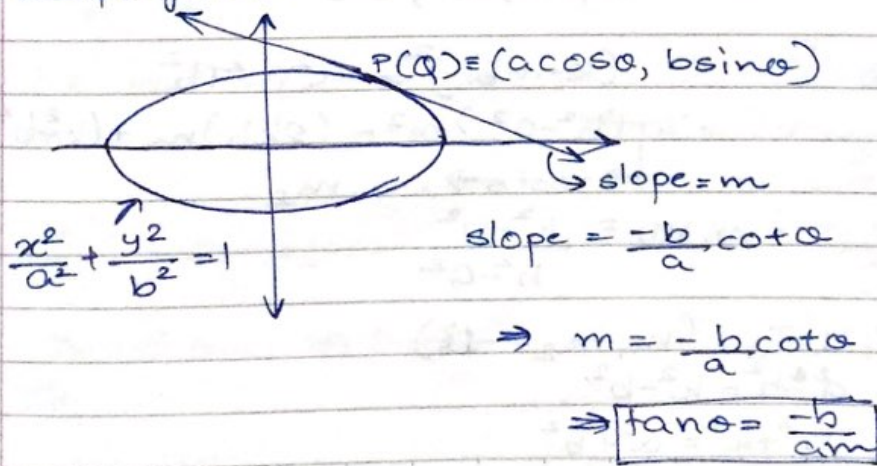 P(Q)≡(acosθ, bsinθ)
slope=m
x²/a² + y²/b² =1
slope = -b/a cotθ
⇒ m = -b/a cotθ
⇒ tanθ= -b/am